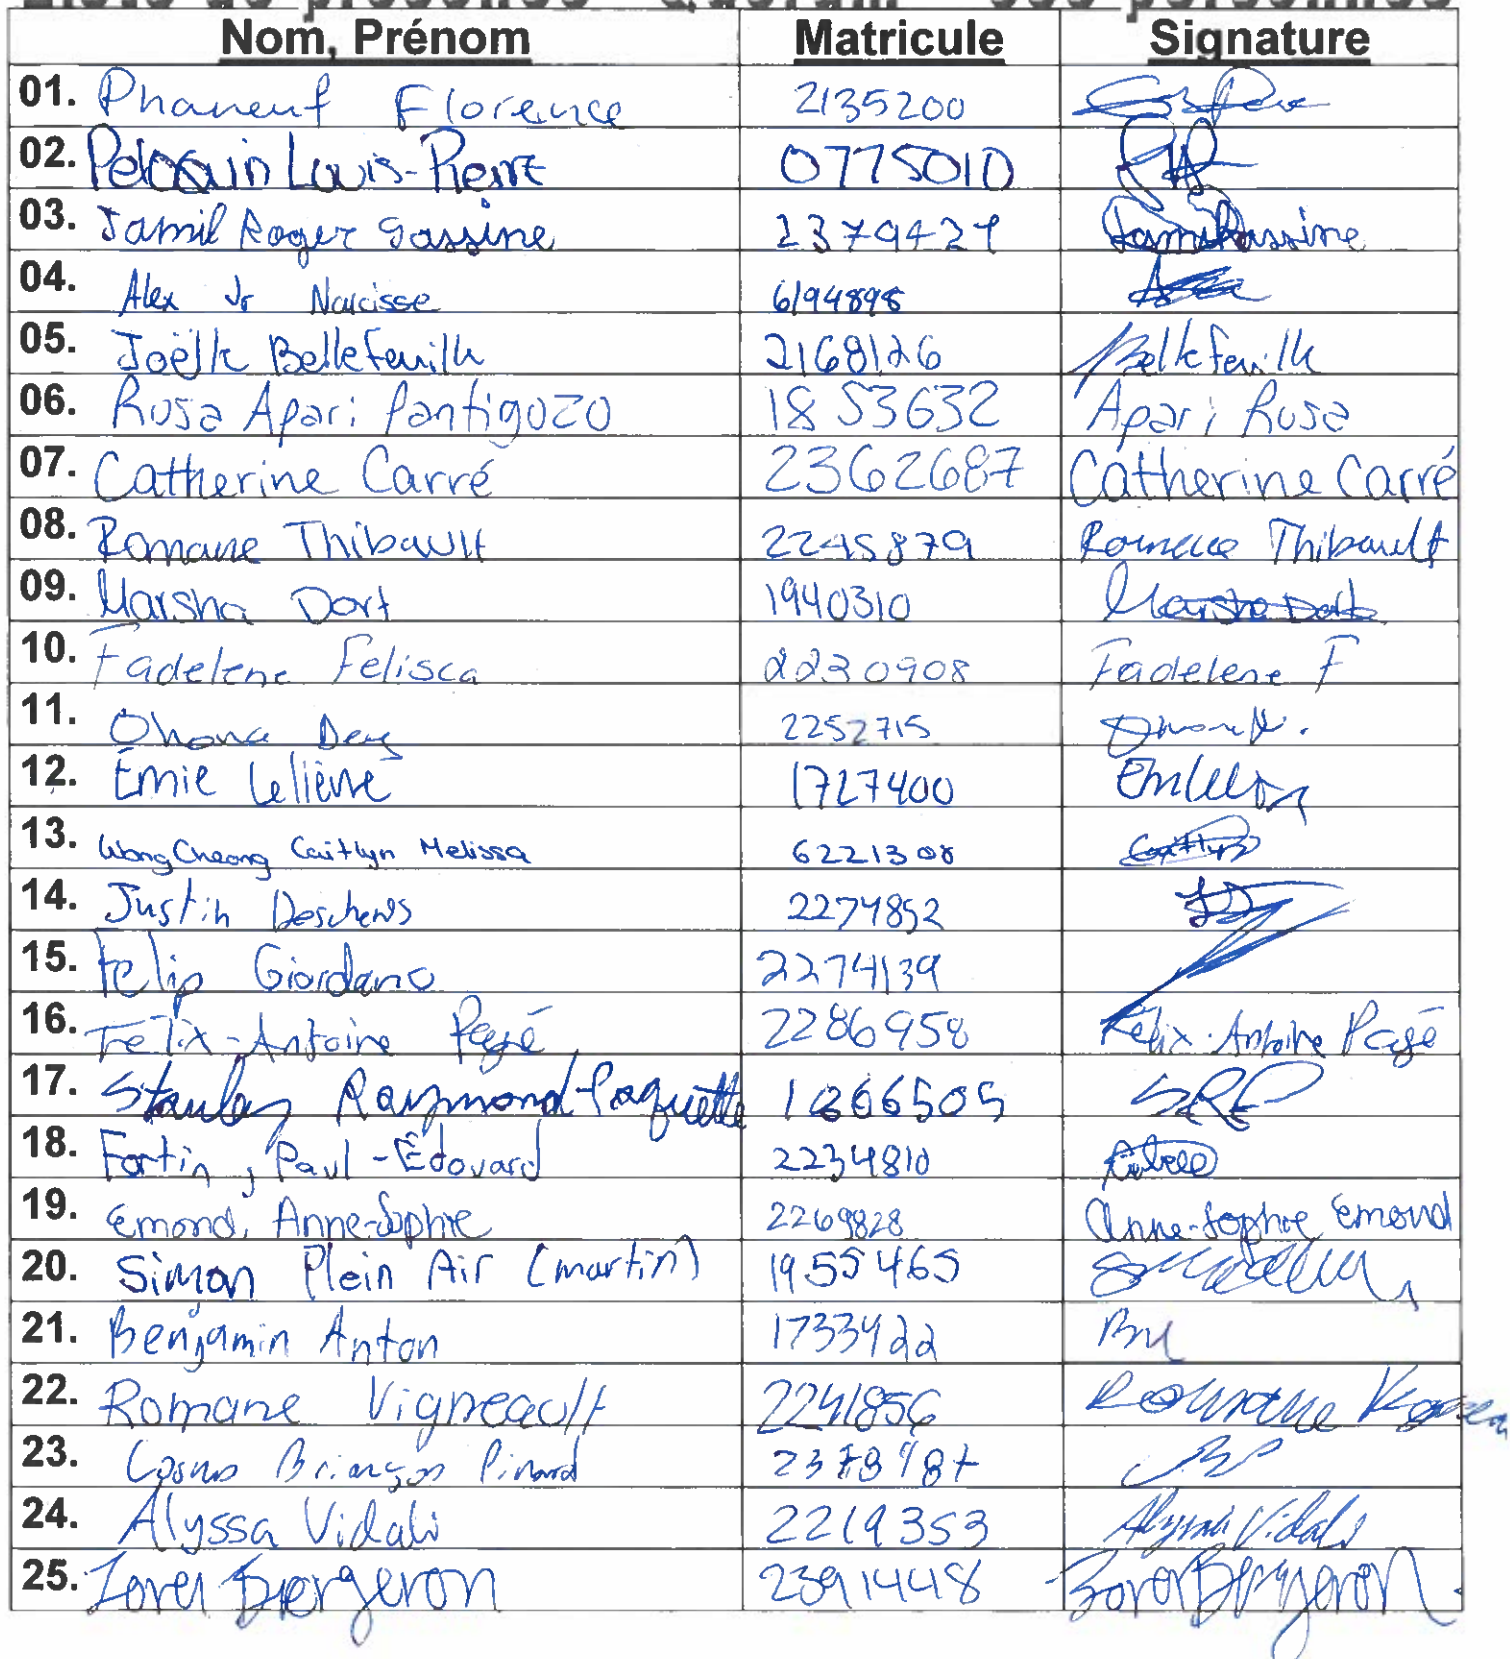 Liste de présence - Quorum - personnes
Nom, Prénom Matricule Signature
01. Phaneuf Florence 2135200
02. Louis-Pierre 0775010
03. Jamil Roger Gassine 2379424
04. Alex Jr Narcisse 6194898
05. Joëlle Bellefeuille 2168126 Bellefeuille
06. Rosa Apari Pantigozo 1853632 Apari Rosa
07. Catherine Carré 2362687 Catherine Carré
08. Romane Thibault 2245879 Romane Thibault
09. Marsha Dort 1940310 Marsha Dort
10. Fadelene Felisca 2230908 Fadelene F
11. Ohona 2252715
12. Émie Lelièvre 1727400
13. Wong Cheong Caitlyn Melissa 6221308
14. Justin Deschens 2274852
15. Felip Giordano 2274139
16. Félix-Antoine Pagé 2286958 Félix-Antoine Pagé
17. Stanley Raymond-Paquette 1866505 SRP
18. Fortin, Paul-Édouard 2234810
19. Emond, Anne-Sophie 2269828 Anne-Sophie Emond
20. Simon Plein Air (martin) 1955465
21. Benjamin Anton 1733422
22. Romane Vigneault 2241856 Romane
23. Briançon Pinard
24. Alyssa Vidali 2219353 Alyssa Vidali
25. Bergeron 2391448 Bergeron